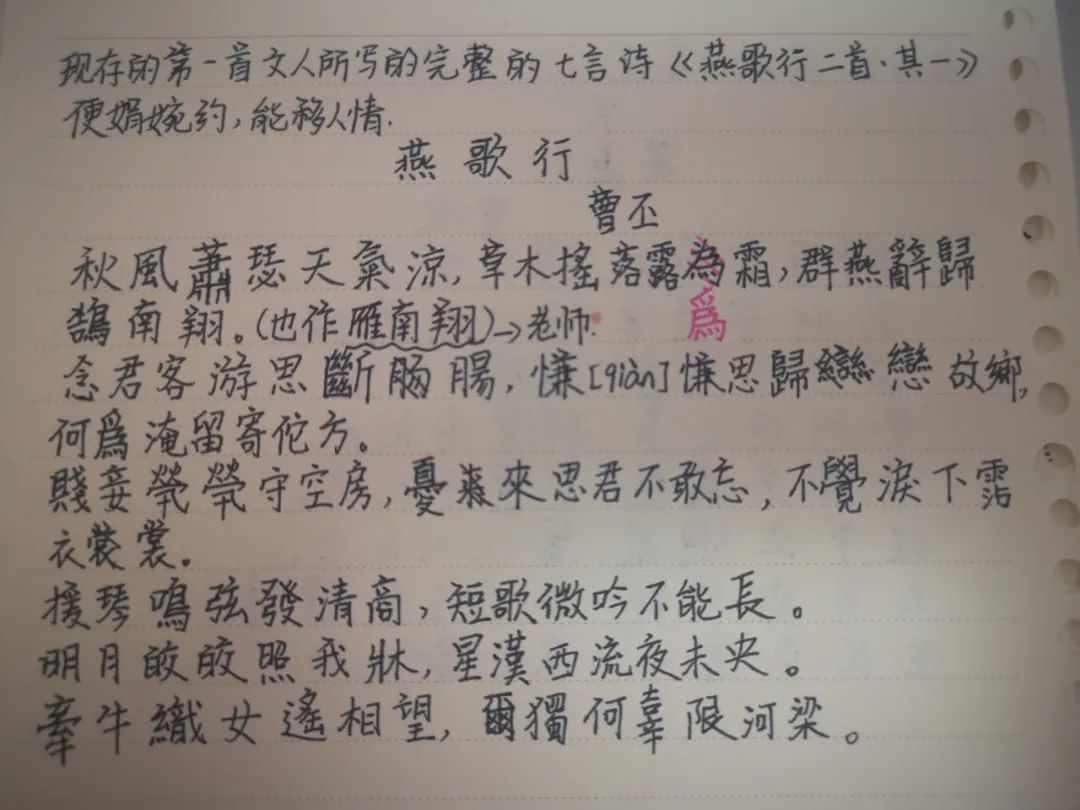 现存的第一首文人所写的完整的七言诗《燕歌行二首·其一》
便娟婉约,能移人情.
燕歌行
曹丕
秋風蕭瑟天氣涼,草木搖落露為霜,群燕辭歸
鵠南翔。(也作雁南翔)→老师.
爲
念君客游思斷肠腸,慊[qiàn]慊思歸戀戀故鄉,
何爲淹留寄佗方。
賤妾煢煢守空房,憂來思君不敢忘,不覺淚下霑
衣裳裳。
援琴鳴弦發清商,短歌微吟不能長。
明月皎皎照我牀,星漢西流夜未央。
牽牛織女遙相望,爾獨何辜限河梁。